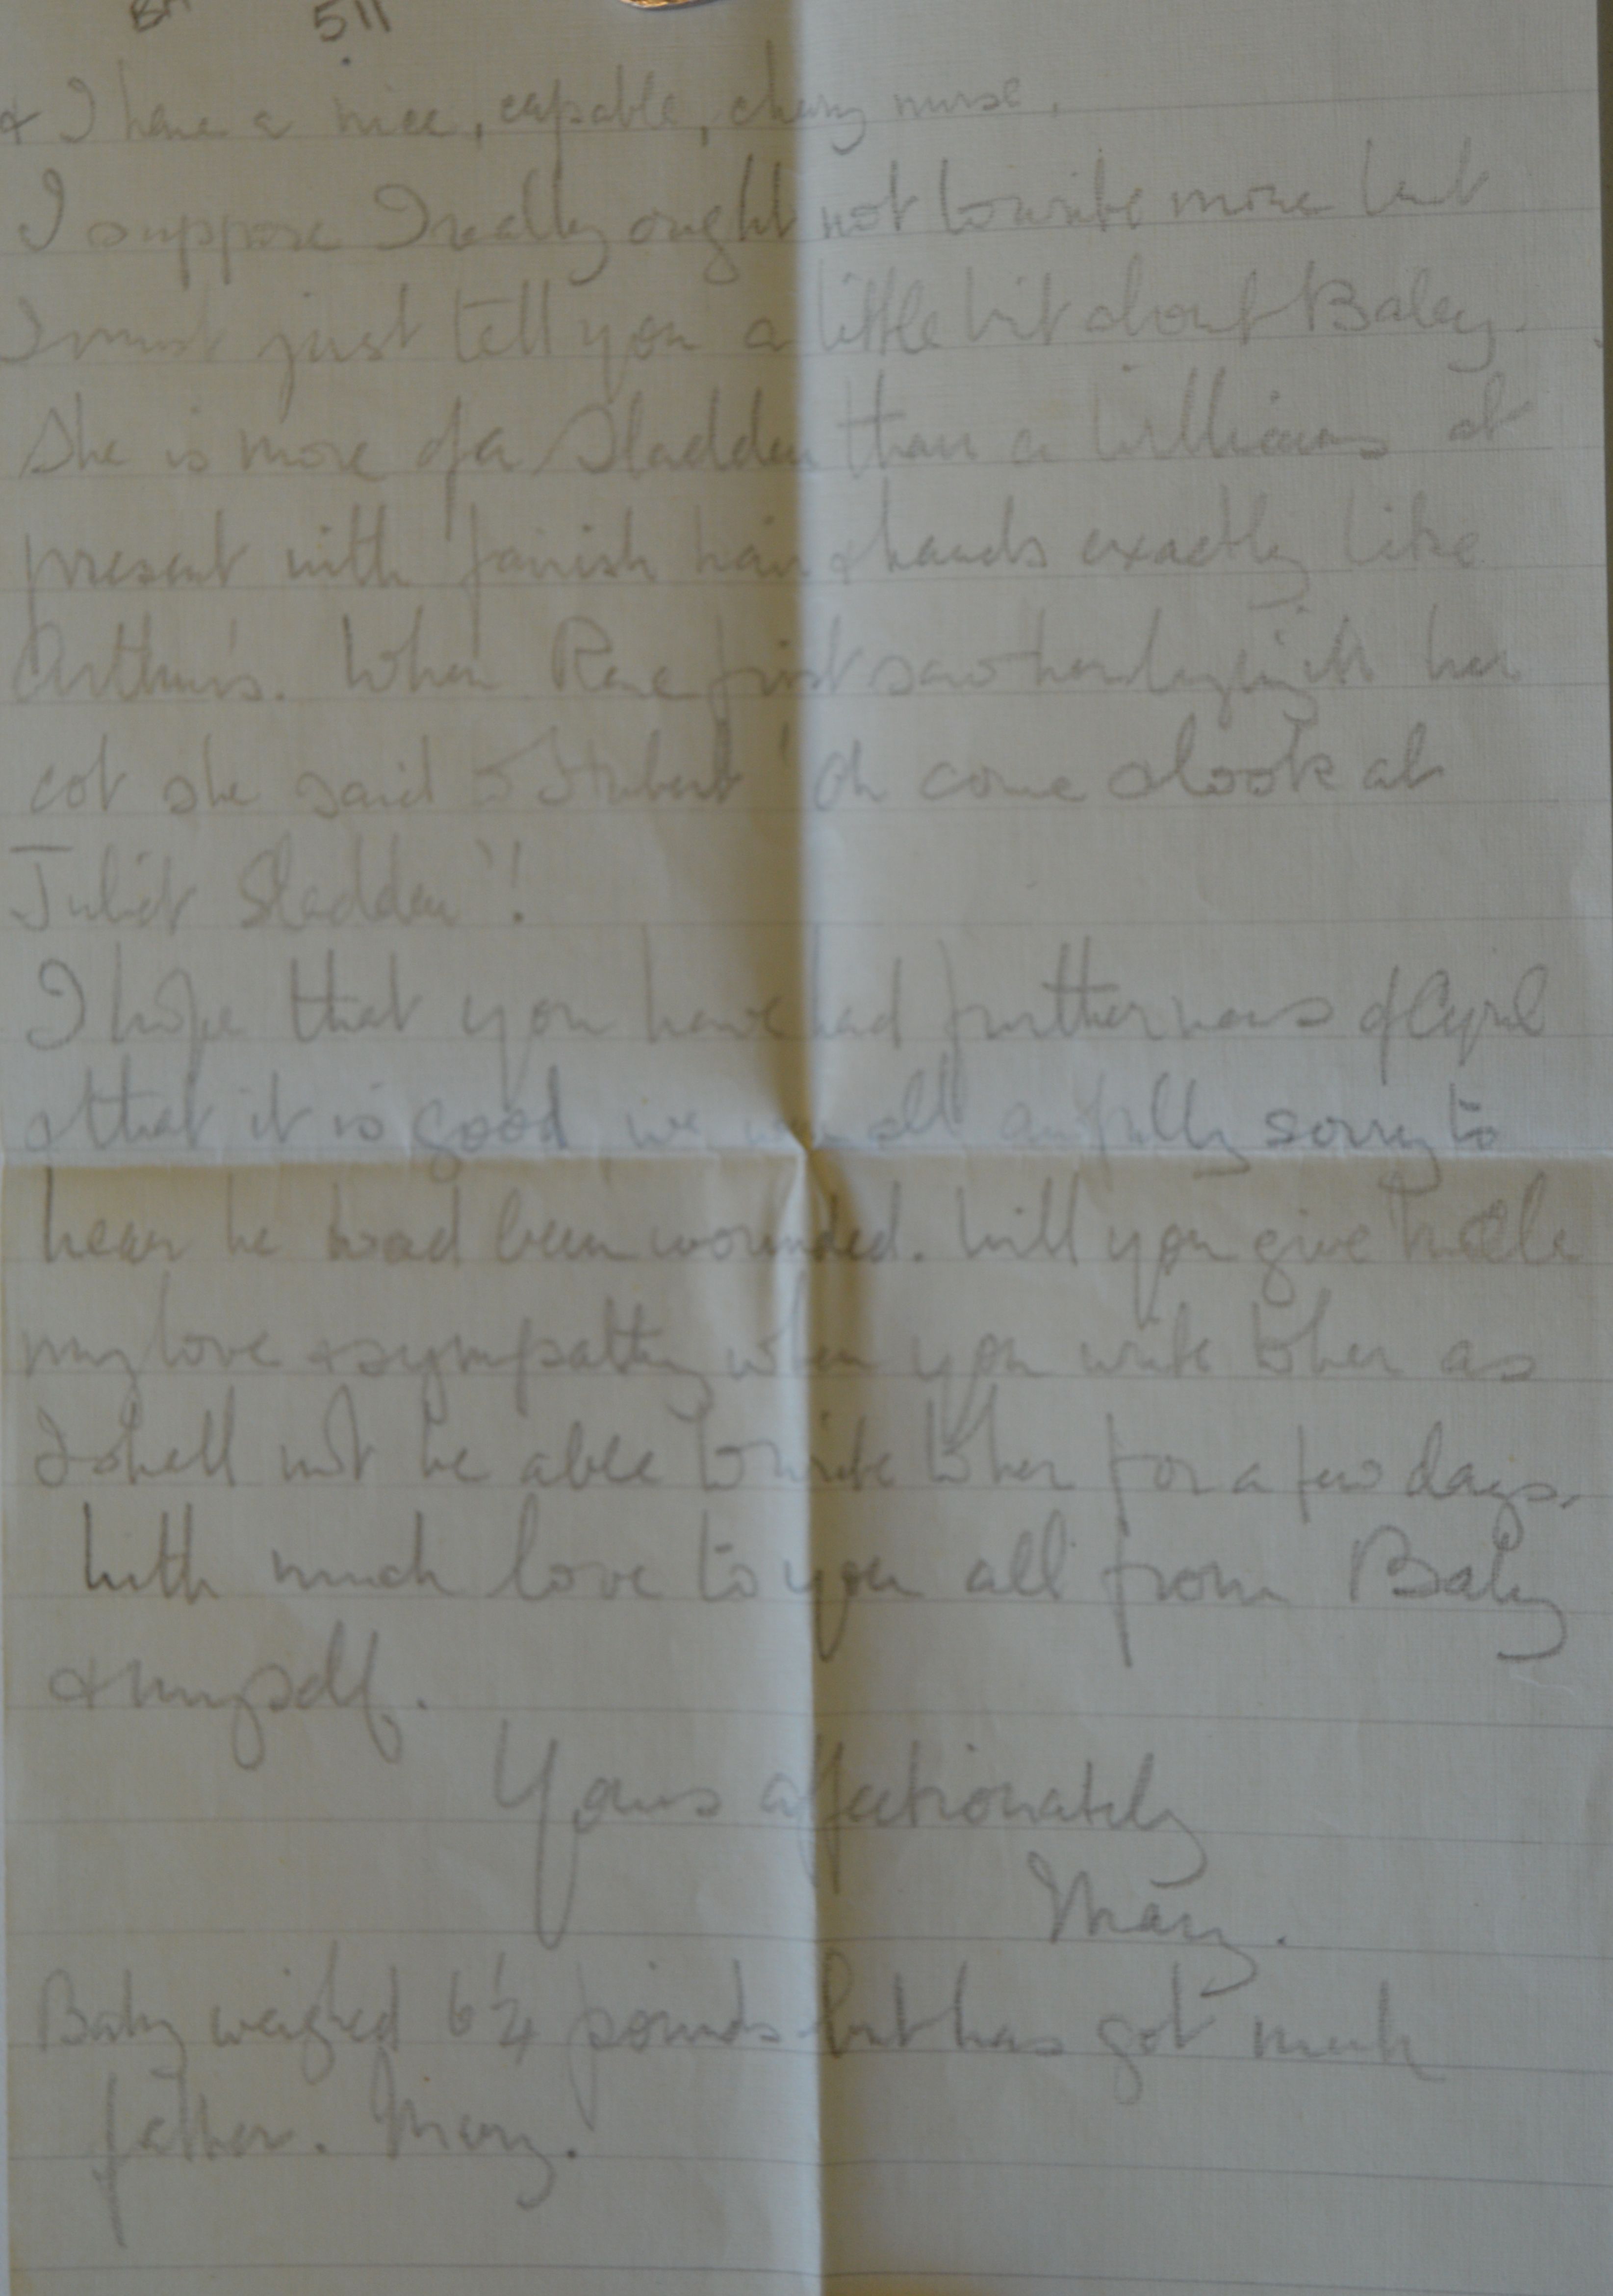 511
& I have a nice, capable, cheery nurse.
I suppose I really ought not to write more but
I must just tell you a little bit about Baby.
She is more of a Sladden than a Williams at
present with fairish hair & hands exactly like
Arthur's. When Rae first saw her lying in her
cot she said to Hubert 'Oh come & look at
Juliet Sladden'!
I hope that you have had further news of Cyril
& that it is good we were all awfully sorry to
hear he had been wounded. Will you give
my love & sympathy when you write to her as
I shall not be able to write to her for a few days.
With much love to you all from Baby
& myself.
Yours affectionately
Mary.
Baby weighed 6¼ pounds but has got much
fatter. Mary.